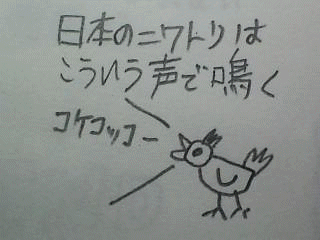 日本のニワトリは
こういう声で鳴く
コケコッコー